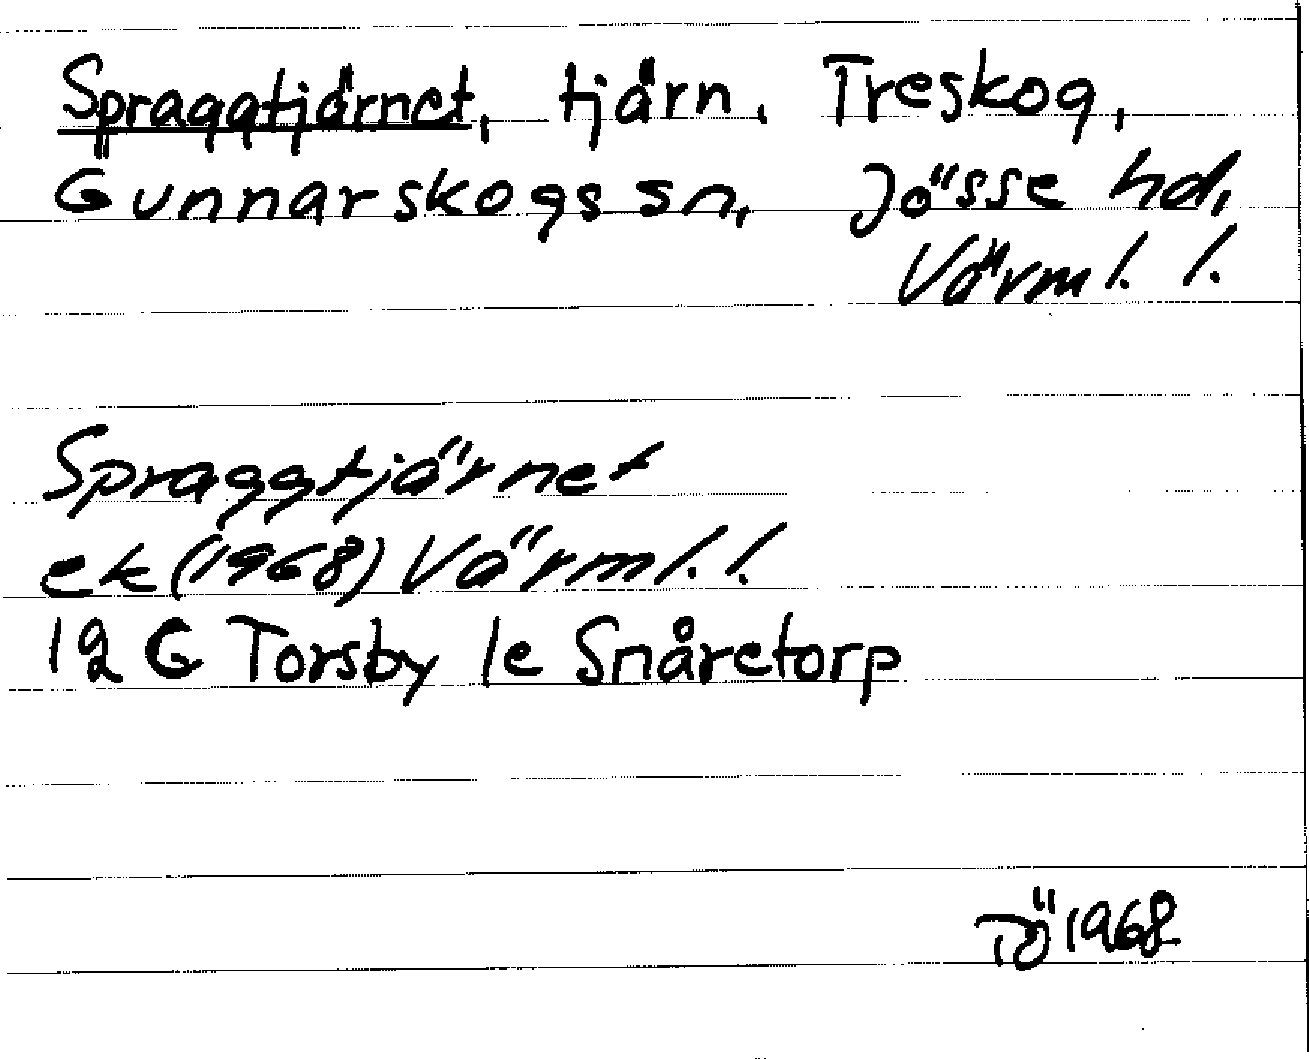 Spraggtjärnet, tjärn. Treskog,
Gunnarskogs sn, Jösse hd,
Värml. l.
Spraggtjärnet
ek (1968) Värml. l.
12 G Torsby 1e Snåretorp
TÖ 1968